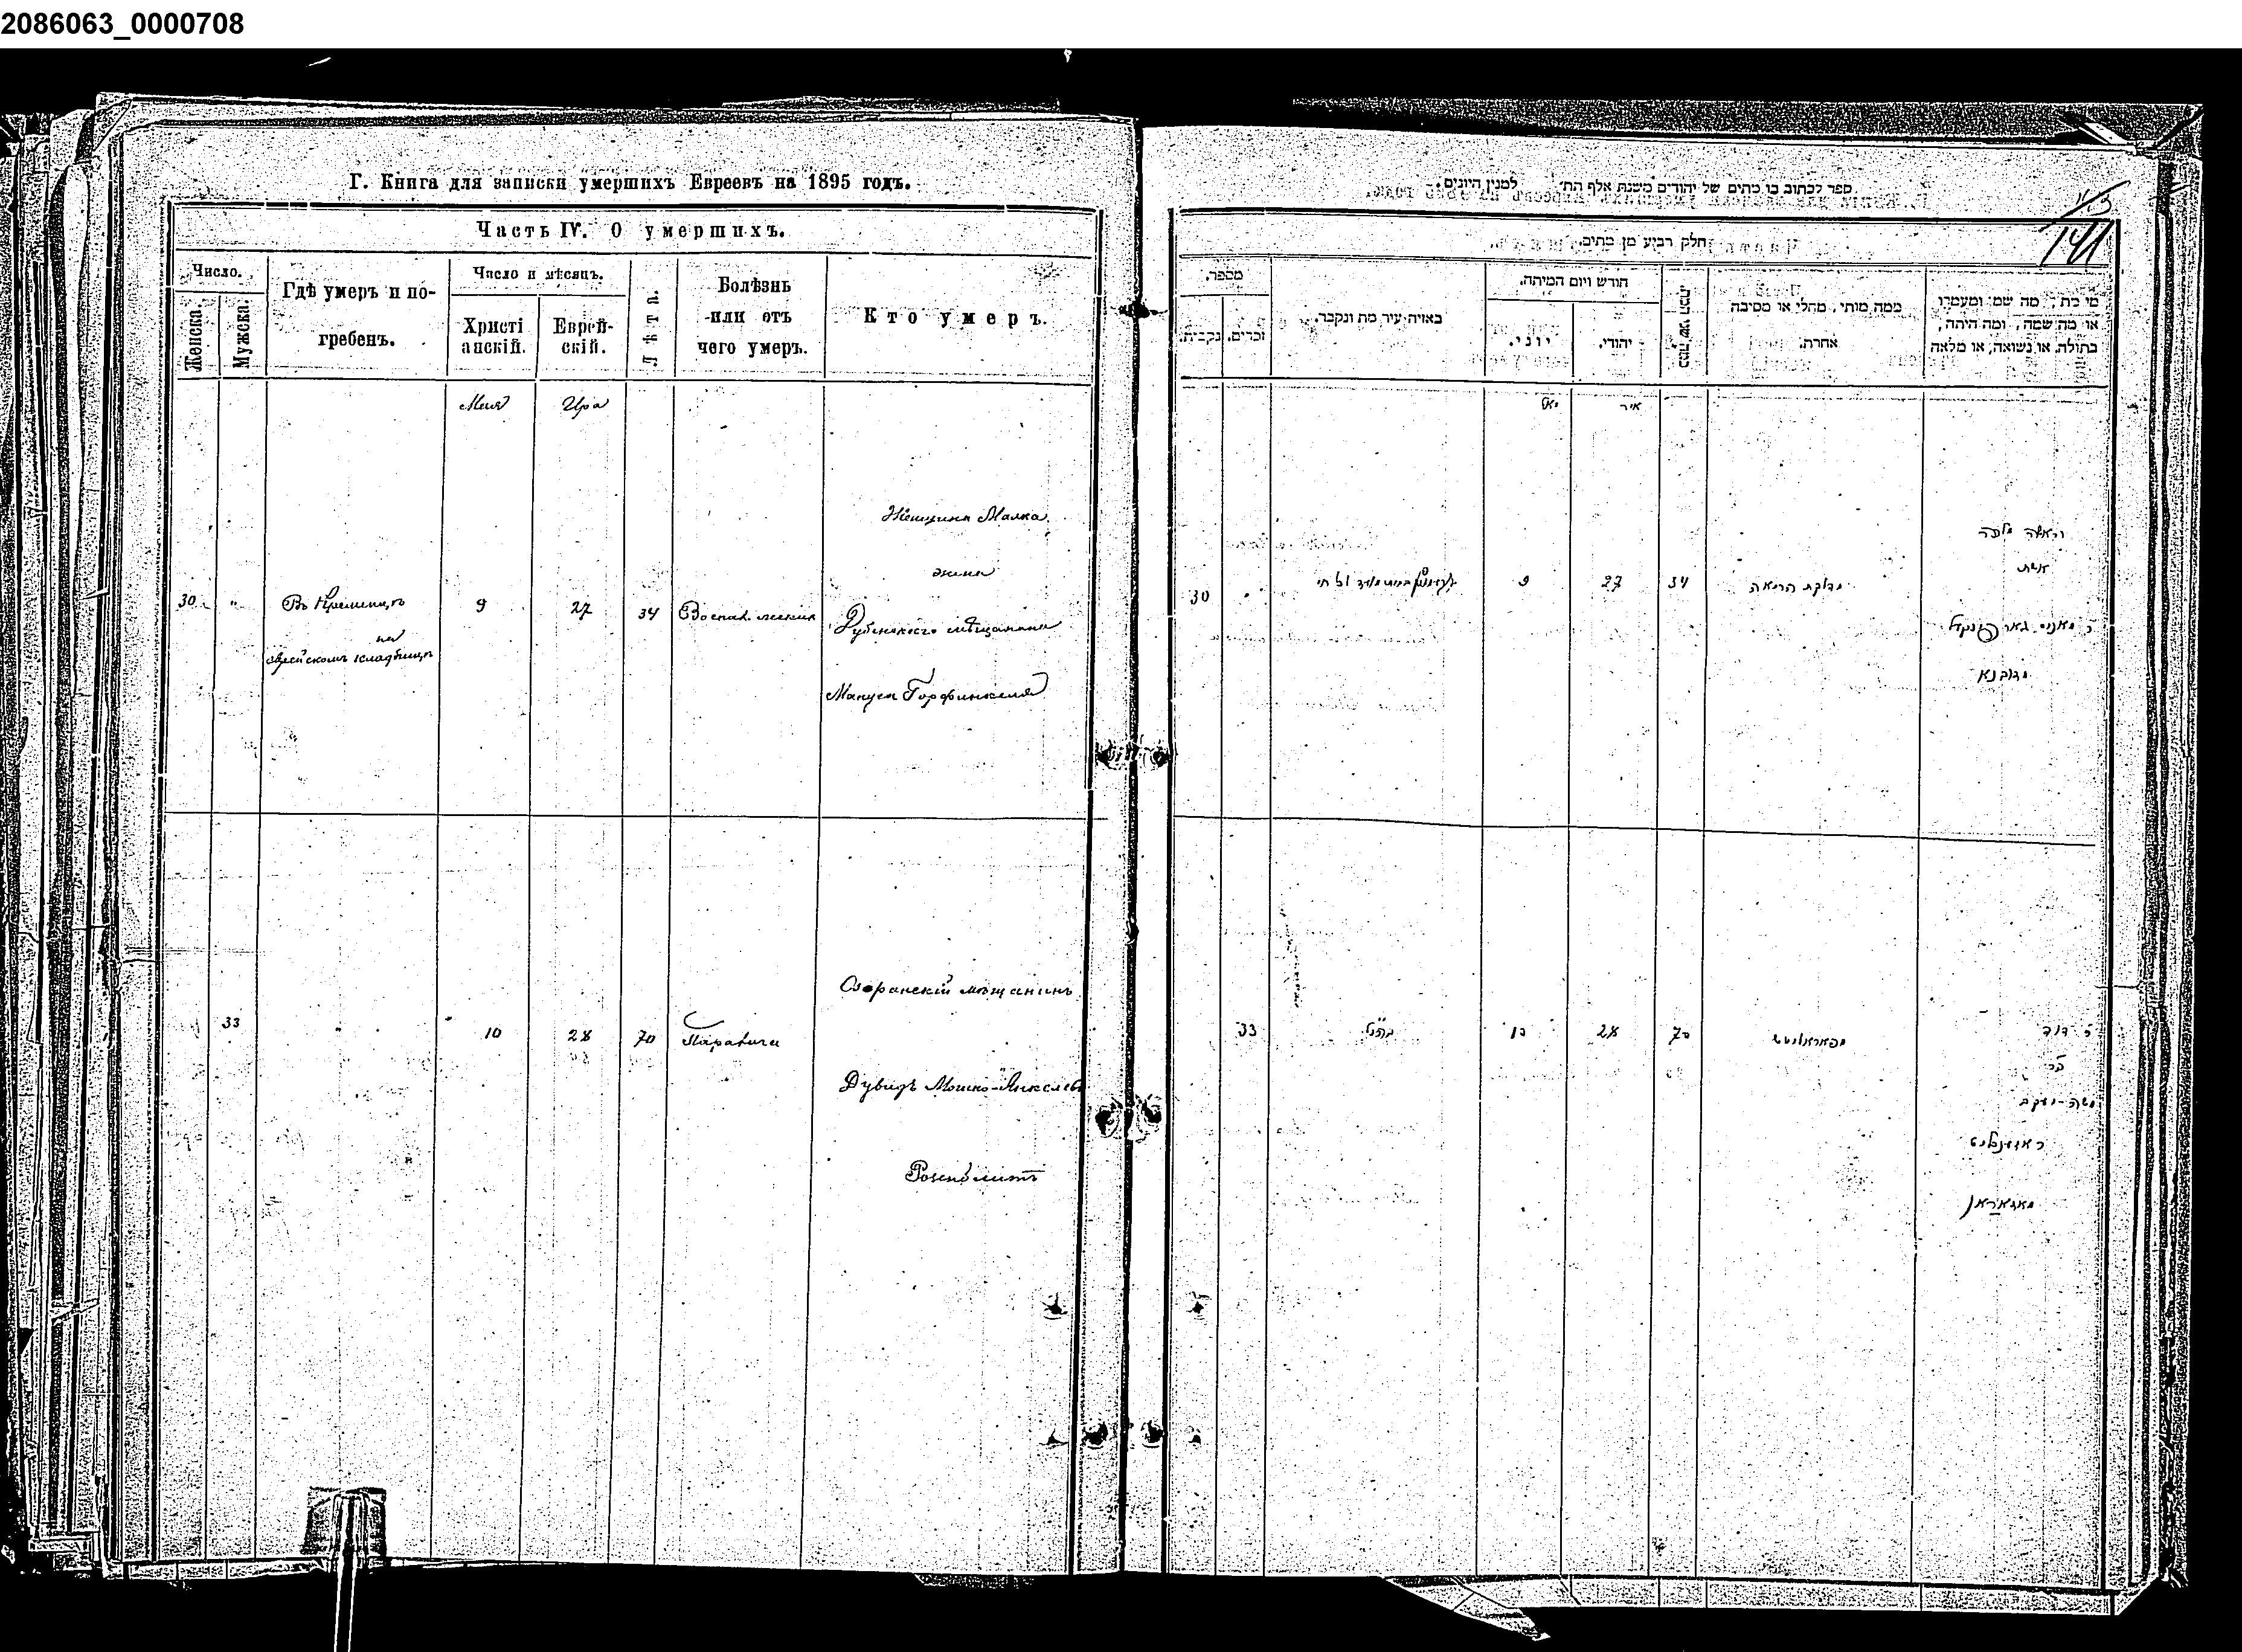 2086063_0000708
Г. Книга для записки умершихъ Евреевъ на 1895 годъ.
Часть IV. О умершихъ.
Число.
Женска.
Мужска.
Гдѣ умеръ и по-
гребенъ.
Число и мѣсяцъ.
Христі
анскій.
Еврей-
скій.
Лѣта.
Болѣзнь
или отъ
чего умеръ.
Кто умеръ.
Мая
Ира
30
"
Въ Кременцѣ
на
еврейскомъ кладбищѣ
9
27
34
Воспал. легких
Женщина Малка
жена
Дубенскаго мѣщанина
Мануси Горфинкеля
33
"
10
28
70
Паралича
Озеранскій мѣщанинъ
Дувидъ Мошко-Янкелев
Розенблитъ
ספר לכתוב בו מתים של יהודים משנת אלף הת׳ למנין היונים.
141
חלק רביע מן מתים.
מספר.
נקבית.
זכרים.
באיזה עיר מת ונקבר.
חודש ויום המיתה.
יוני.
יהודי.
כמה שני המת.
ממה מותי, מחלי או מסיבה
אחרת.
מי מת, מה שמו ומעמדו
או מה שמה, ומה היתה,
בתולה, או נשואה, או מלאה
מאי
אייר
30
9
27
34
מדלקת הריאה
האשה מלכה
אשת
מדובנא
33
כנ״ל
10
28
70
ר׳ דוד
בר
משה-יעקב